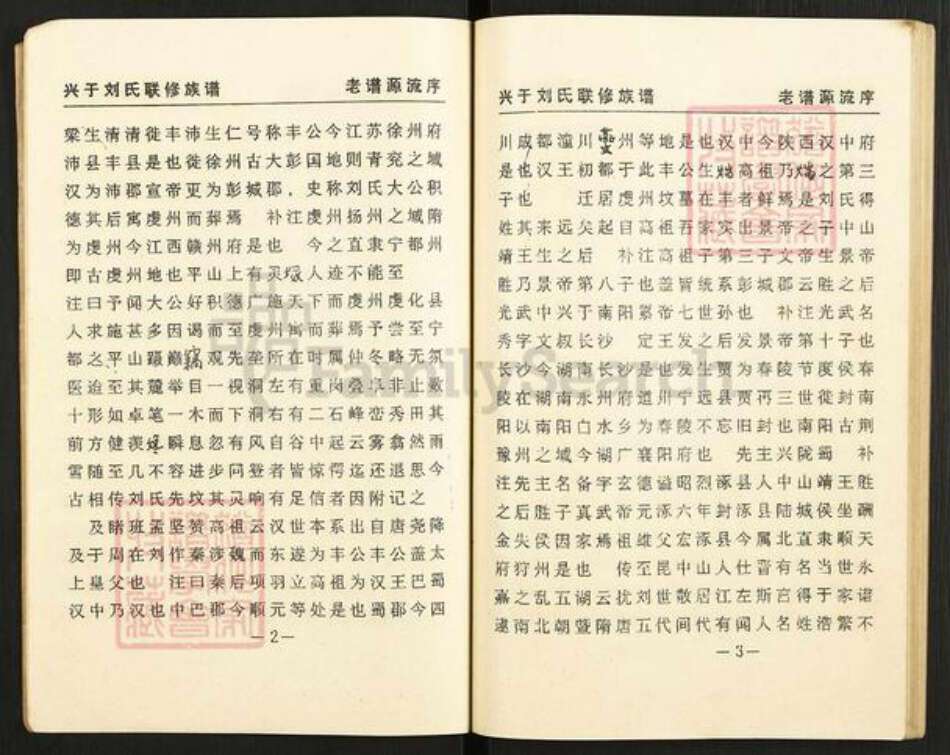 兴于刘氏联修族谱 老谱源流序
梁生清清徙丰沛生仁号称丰公今江苏徐州府
沛县丰县是也徙徐州古大彭国地则青兖之域
汉为沛郡宣帝更为彭城郡，史称刘氏大公积
德其后寓虔州而葬焉 补注虔州扬州之域隋
为虔州今江西赣州府是也 今之直隶宁都州
即古虔州地也平山上有灵 人迹不能至
注曰予闻大公好积德广施天下而虔州虔化县
人求施甚多因谒而至虔州寓而葬焉予尝至宁
都之平山蹑巅 观先垄所在时属仲冬略无氛
医迨至其麓举目一视洞左有重岗叠阜非止数
十形如卓笔一木而下洞右有二石峰峦秀田其
前方健羡 瞬息忽有风自谷中起云雾翕然雨
雪随至几不容进步问登者皆惊愕迄还退思今
古相传刘氏先坟其灵响有足信者因附记之
及睹班孟坚赞高祖云汉世本系出自唐尧降
及于周在刘作秦涉魏而东遂为丰公丰公盖太
上皇父也 注曰秦后项羽立高祖为汉王巴蜀
汉中乃汉也中巴郡今顺元等处是也蜀郡今四
—2—
兴于刘氏联修族谱 老谱源流序
川成都潼川 州等地是也汉中今陕西汉中府
是也汉王初都于此丰公生 高祖乃 之第三
子也 迁居虔州坟墓在丰者鲜焉是刘氏得
姓其来远矣起目高祖吾家实出景帝之子中山
靖王生之后 补注高祖子第三子文帝生景帝
胜乃景帝第八子也盖皆统系彭城郡云胜之后
光武中兴于南阳景帝七世孙也 补注光武名
秀字文叔长沙 定王发之后发景帝第十子也
长沙今湖南长沙是也发生贾为春陵节度侯春
陵在湖南永州府道川宁远县贾再三世徙封南
阳以南阳白水乡为春陵不忘旧封也南阳古荆
豫州之域今湖广襄阳府也 先主兴陇蜀 补
注先主名备字玄德谥昭烈涿县人中山靖王胜
之后胜子真武帝元涿六年封涿县陆城侯坐酬
金失侯因家焉祖雄父宏涿县今属北直隶顺天
府狩州是也 传至昆中山人仕晋有名当世永
嘉之乱五湖云扰刘世散居江左斯言得于家谱
逮南北朝暨隋唐五代间代有闻人名姓浩繁不
—3—
FamilySearch